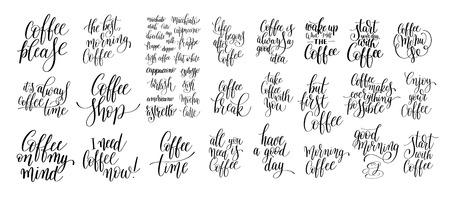 Coffee
please
the best
morning
Coffee
macchiato
cappuccino
mocha
latte
flat white
cappuccino
Irish
mocha
Life
begins
after
Coffee
Coffee
is always
a good
idea
wake up
and smell
THE
Coffee
start
your day
with
Coffee
Coffee
Menu
it's always
Coffee
time
Coffee
Shop
Coffee
break
take
Coffee
with
you
but
first
Coffee
Coffee
makes
everything
possible
Enjoy
your
Coffee
Coffee
on my
mind
I need
Coffee
now!
Coffee
time
all you
need is
Coffee
have
a good
day
Morning
Coffee
good
morning
start
with
Coffee